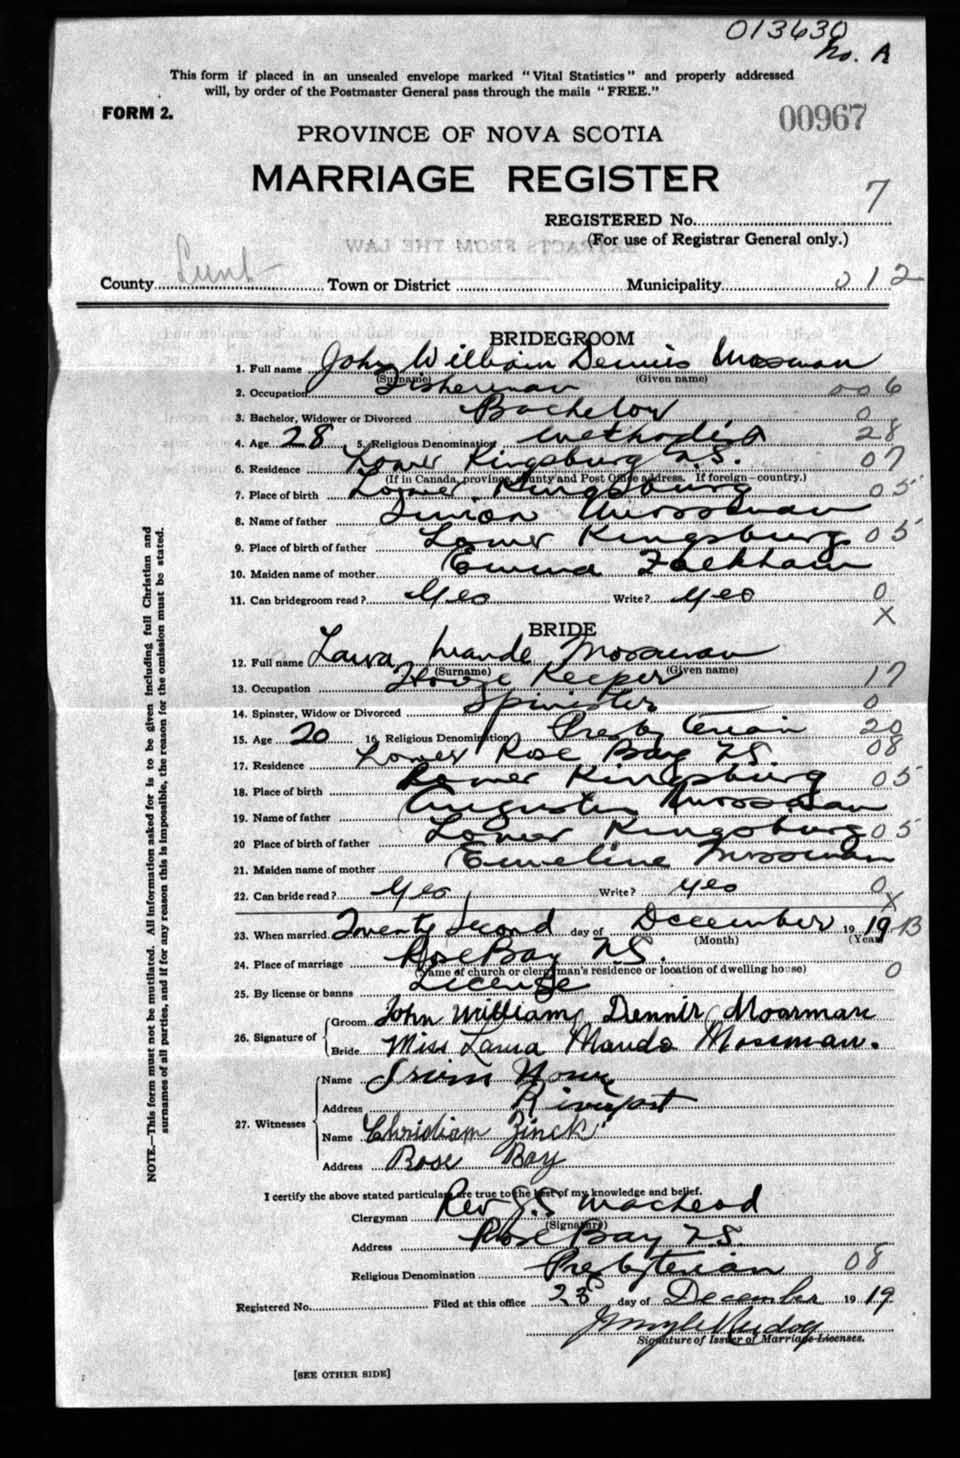 013630
No. A
This form if placed in an unsealed envelope marked "Vital Statistics" and properly addressed
will, by order of the Postmaster General pass through the mails "FREE."
FORM 2.
00967
PROVINCE OF NOVA SCOTIA
MARRIAGE REGISTER
7
REGISTERED No.
(For use of Registrar General only.)
EXTRACTS FROM THE LAW
County Lunt Town or District Municipality 212
BRIDEGROOM
1. Full name John William Dennis Mosman
(Surname) (Given name)
2. Occupation Fisherman 006
3. Bachelor, Widower or Divorced Bachelor 0
4. Age 28 5. Religious Denomination Methodist 28
6. Residence Lower Kingsburg N.S. 07
(If in Canada, province, county and Post Office address. If foreign—country.)
7. Place of birth Lower Kingsburg 05
8. Name of father Mossman
9. Place of birth of father Lower Kingsburg 05
10. Maiden name of mother Emma
11. Can bridegroom read? Yes Write? Yes 0
X
BRIDE
12. Full name Laura Maude Mossman
(Surname) (Given name)
13. Occupation House Keeper 17
14. Spinster, Widow or Divorced Spinister 0
15. Age 20 16. Religious Denomination Presbyterian 20
17. Residence Lower Rose Bay N.S. 08
18. Place of birth Lower Kingsburg 05
19. Name of father Augustus Mossman
20 Place of birth of father Lower Kingsburg 05
21. Maiden name of mother Emeline Mossman
22. Can bride read? Yes Write? Yes 0
X
23. When married Twenty Second day of December 1919 B
(Month) (Year)
24. Place of marriage Rose Bay N.S.
(Name of church or clergyman's residence or location of dwelling house) 0
25. By license or banns License
26. Signature of Groom John William Dennis Mosman
Bride Miss Laura Maude Mossman.
27. Witnesses Name Irvin
Address Riverport
Name Christiam Zinck
Address Rose Bay
I certify the above stated particulars are true to the best of my knowledge and belief.
Clergyman Rev J.S. Macleod
(Signature)
Address Rose Bay N.S.
Religious Denomination Presbyterian 08
Registered No. Filed at this office 23 day of December 1919
Signature of Issuer of Marriage Licenses.
[SEE OTHER SIDE]
NOTE.—This form must not be mutilated. All information asked for is to be given including full Christian and
surnames of all parties, and if for any reason this is impossible, the reason for the omission must be stated.